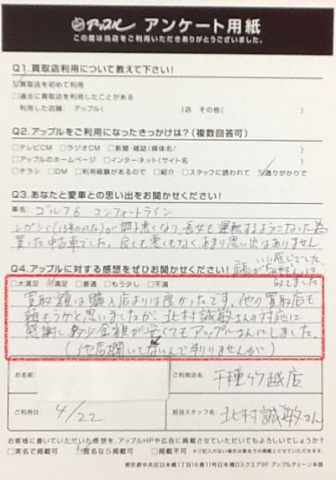 アップル アンケート用紙
この度は当店をご利用いただきありがとうございました。
Q1.買取店利用について教えて下さい!
買取店を初めて利用
□過去に買取を利用したことがある
利用した店舗: アップル( )店 その他( )
Q2.アップルをご利用になったきっかけは?(複数回答可)
□テレビCM □ラジオCM □新聞・雑誌(媒体名/ )
□アップルのホームページ □インターネット(サイト名/ )
□チラシ □DM □利用経験があるので □紹介 □スタッフに誘われて 通りがかりで
Q3.あなたと愛車との思い出をお聞かせください!
車名: ゴルフ6 コンフォートライン
レガシィ(13年のった)が調子悪くなり、長女も運転するようになった為
買った中古車でした。良くも悪くもなくあまり思い出はありません
Q4.アップルに対する感想をぜひお聞かせください!
□大満足 満足 □普通 □もう少し □不満
買取額は購入店よりは良かったです。他の買取店も
頼もうかと思いましたが、北村誠敏さんの対応に
感謝し、多少金額が安くてもアップルさんにしました。
(他店聞いてないんで判りませんが)
お名前
千種ケ久越店
ご利用日
4/22
担当スタッフ名
北村誠敏さん
お客様に書いていただいた感想を、アップルHPや広告に掲載させていただいてもよろしいでしょうか?
□実名で掲載可 匿名なら掲載可 □掲載不可
東京都中央区日本橋1丁目16番11号日本橋DスクエアBF アップルチェーン本部